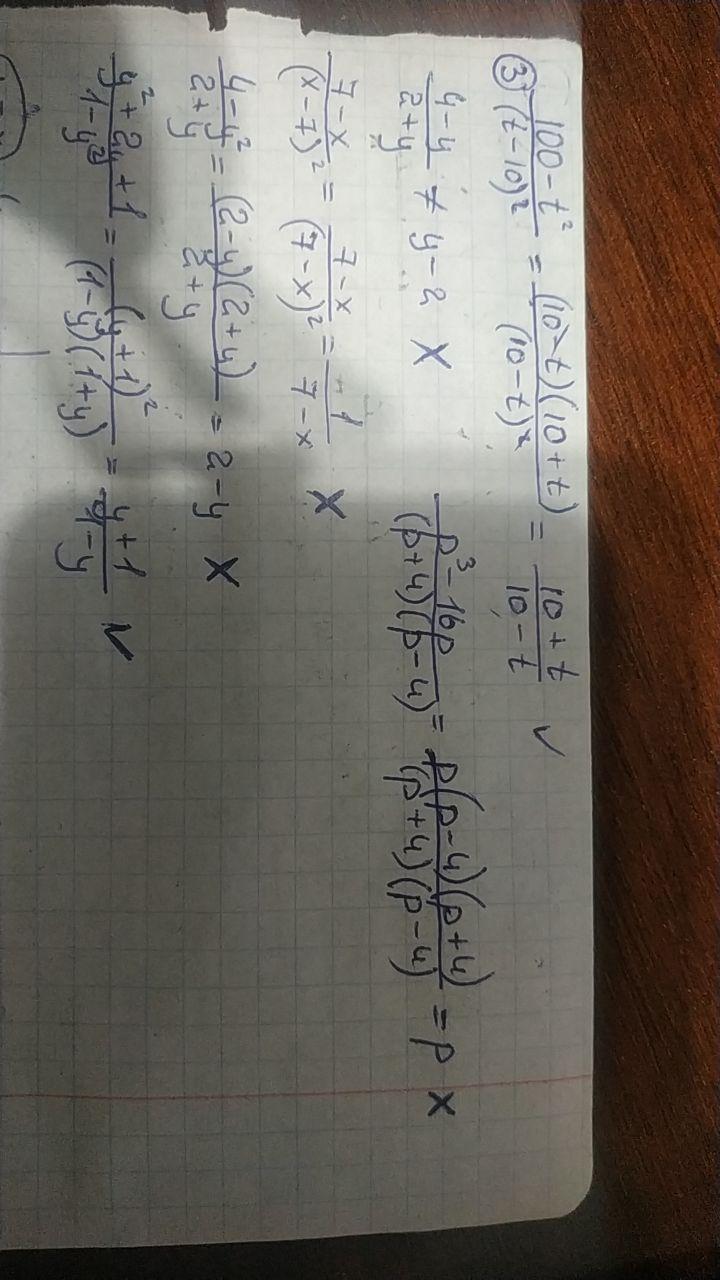 ③ (100-t²)/(t-10)² = ((10-t)(10+t))/(10-t)² = (10+t)/(10-t) ✓
(4-y)/(2+y) ≠ y-2 ✗
(p³-16p)/((p+4)(p-4)) = (p(p-4)(p+4))/((p+4)(p-4)) = p ✗
(7-x)/(x-7)² = (7-x)/(7-x)² = 1/(7-x) ✗
(4-y²)/(2+y) = ((2-y)(2+y))/(2+y) = 2-y ✗
(y²+2y+1)/(1-y²) = (y+1)²/((1-y)(1+y)) = (y+1)/(1-y) ✓